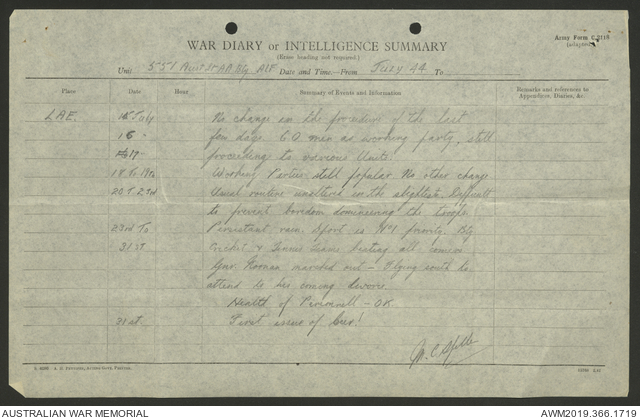 Army Form C.2118
(adapted)
WAR DIARY or INTELLIGENCE SUMMARY
(Erase heading not required)
Unit 551 Aust Lt AA Bty AIF Date and Time—From July 44 To
Place Date Hour Summary of Events and Information Remarks and references to Appendices, Diaries, &c.
LAE. 15 July No change in the procedure of the last
16 " few days. 60 men as working party, still
17 proceeding to various Units.
18 to 19th Working Parties still popular. No other change
20 T. 23rd Usual routine unaltered in the slightest. Difficult
to prevent boredom domineering the troops.
23rd To Persistant rain. Sport is No1 priority. Bty
31st Cricket & Tennis Teams beating all comers.
Gnr Noonan marched out - Flying south to
attend to his divorce.
Health of Personnell - OK
31st. First issue of beer!
AUSTRALIAN WAR MEMORIAL
AWM2019.366.1719